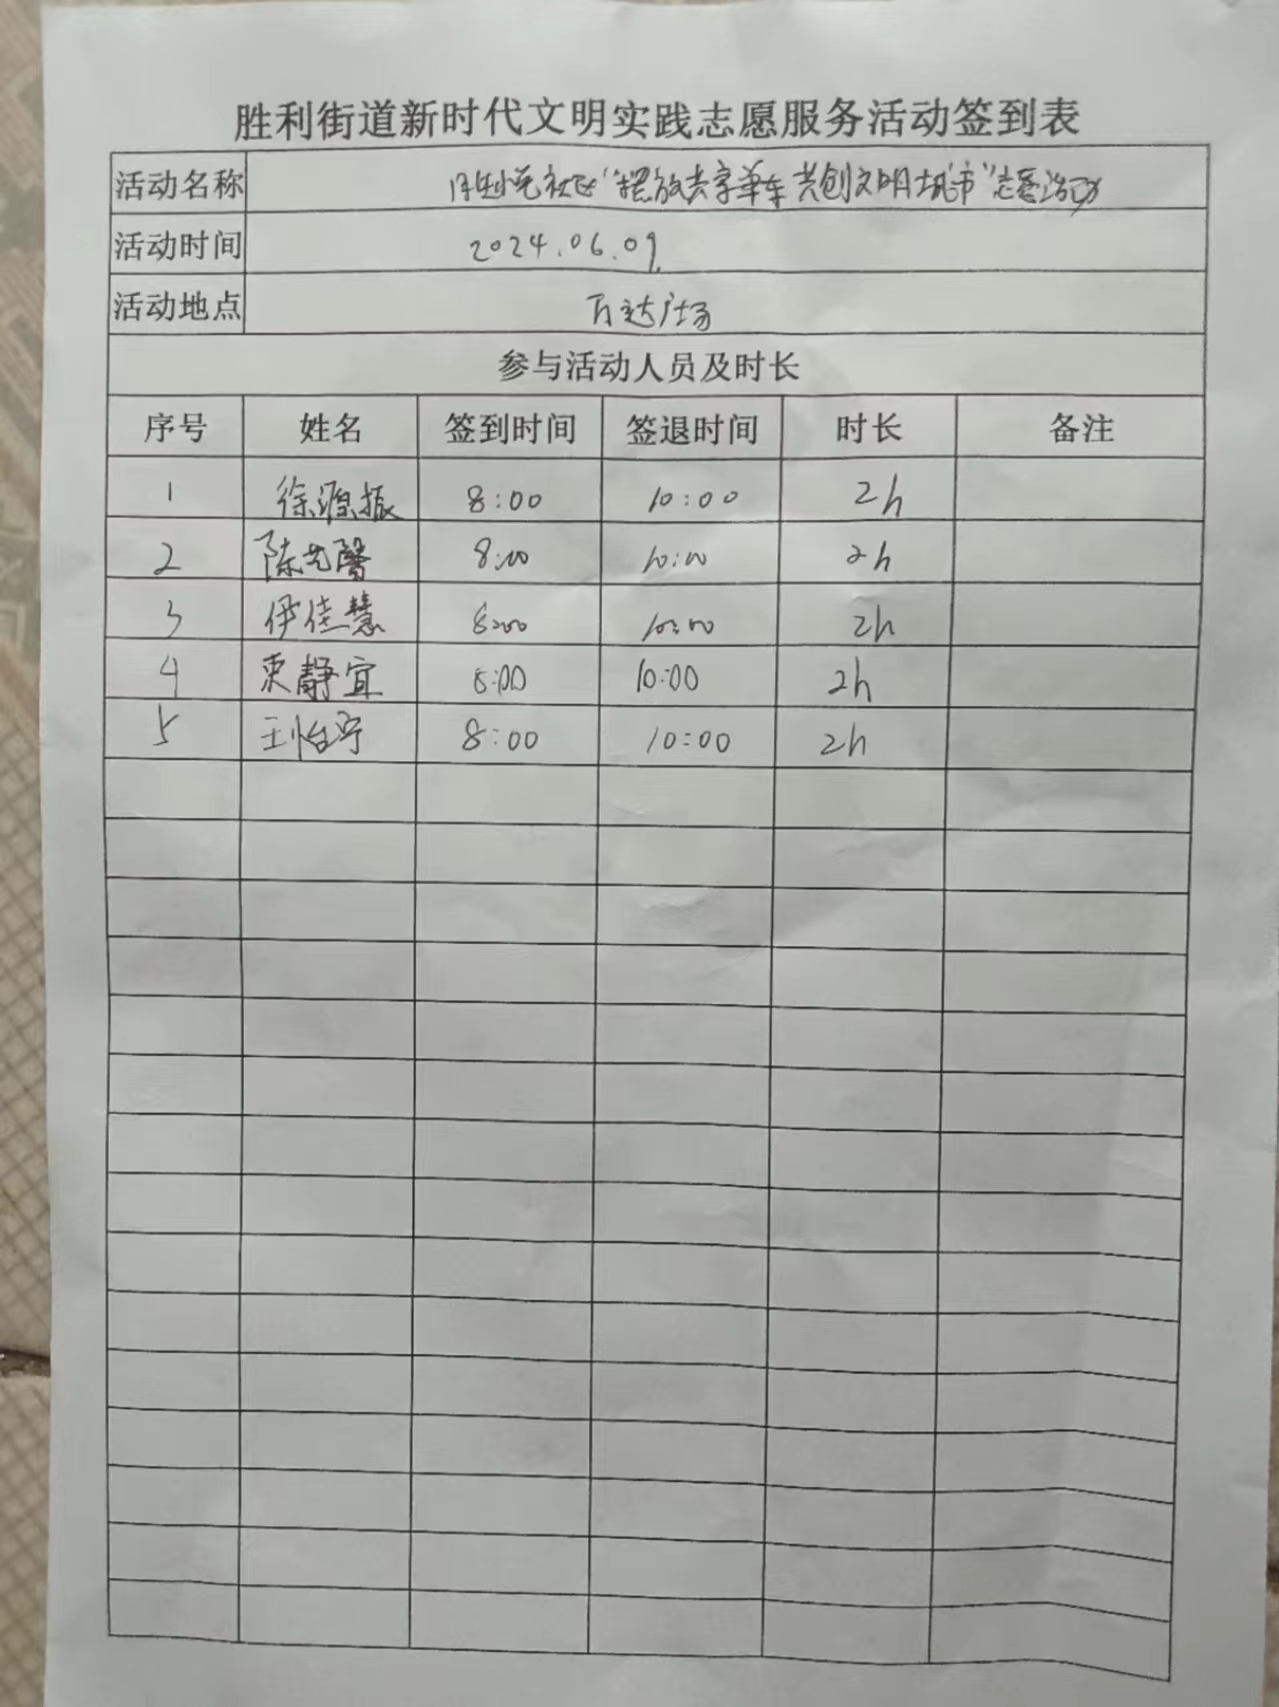 胜利街道新时代文明实践志愿服务活动签到表
活动名称 社区“摆放共享单车 共创文明城市”志愿活动
活动时间 2024.06.09
活动地点 万达广场
参与活动人员及时长
序号 姓名 签到时间 签退时间 时长 备注
1 徐源振 8:00 10:00 2h
2 陈 8:00 10:00 2h
3 伊佳慧 8:00 10:00 2h
4 束静宜 8:00 10:00 2h
5 王怡宁 8:00 10:00 2h